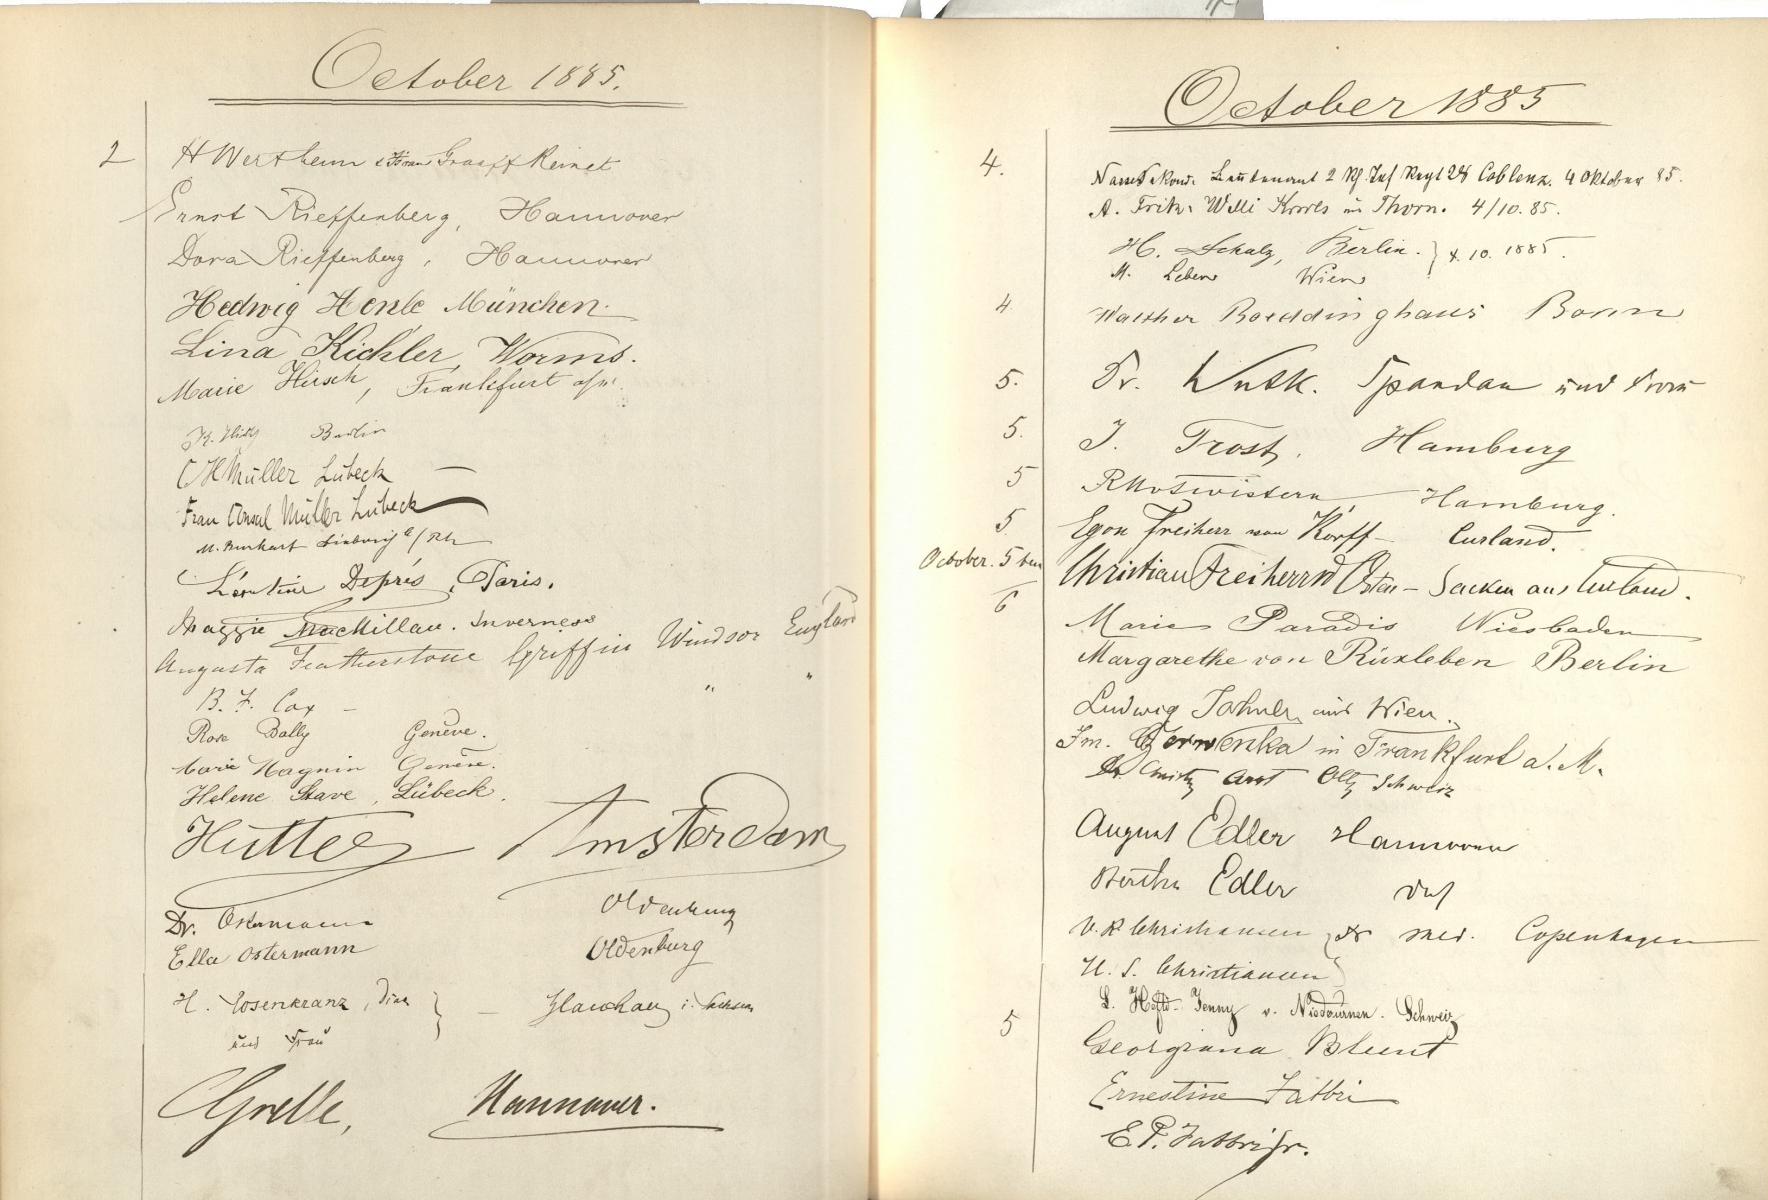 October 1885.
2 H Wertheim & Frau Graaff Reinet
Ernst Rieffenberg, Hannover
Dora Rieffenberg, Hannover
Hedwig Henle München.
Lina Kichler, Worms.
Marie Hirsch, Frankfurt a/m.
Berlin
C H Müller Lübeck
Frau Consul Müller Lübeck
M. Burkart
Léontine Deprés, Paris.
Maggie MacMillan. Inverness
Augusta Featherstone Griffin Windsor England
B. F. Cox – " "
Rose Dally Genève.
Marie Magnin Genève.
Helene Stave, Lübeck.
Amsterdam
Dr. Ostermann Oldenburg
Ella Ostermann Oldenburg
H. Rosenkranz, } – Glauchau i. Sachsen
und Frau
Grelle, Hannover.
October 1885
4. Lieutenant 2 Rh. Inf Regt 28 Coblenz. 4 Oktober 85.
A. Fritz. Willi Thorn. 4/10. 85.
H. Schulz, Berlin. } 4. 10. 1885.
M. Wien
4 Walther Boeddinghaus Bonn
5. Dr. Spandau und Frau
5. J. Trost, Hamburg
5 Hamburg.
5 Egon Freiherr von Korff – Curland.
October. 5ten Christian Freiherr v Osten – Sacken aus Curland.
6 Marie Paradis Wiesbaden
Margarethe von Rüxleben Berlin
Ludwig aus Wien.
Czerwenka in Frankfurt a. M.
Dr Arzt Schweiz
August Edler Hannover
Bertha Edler
V. R Christiansen } Dr med. Copenhagen
U. S. Christiansen
5 Jenny v. Niederurnen. Schweiz
Georgiana Blunt
Ernestine Fabbri
E. P. Fabbri Jr.